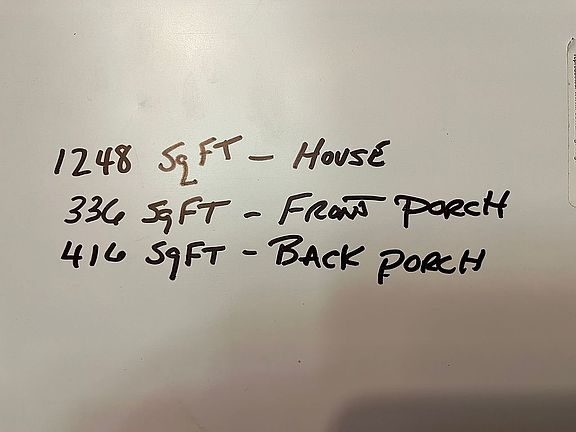 1248 SqFT - HOUSE
336 SqFT - FRONT PORCH
416 SqFT - BACK PORCH